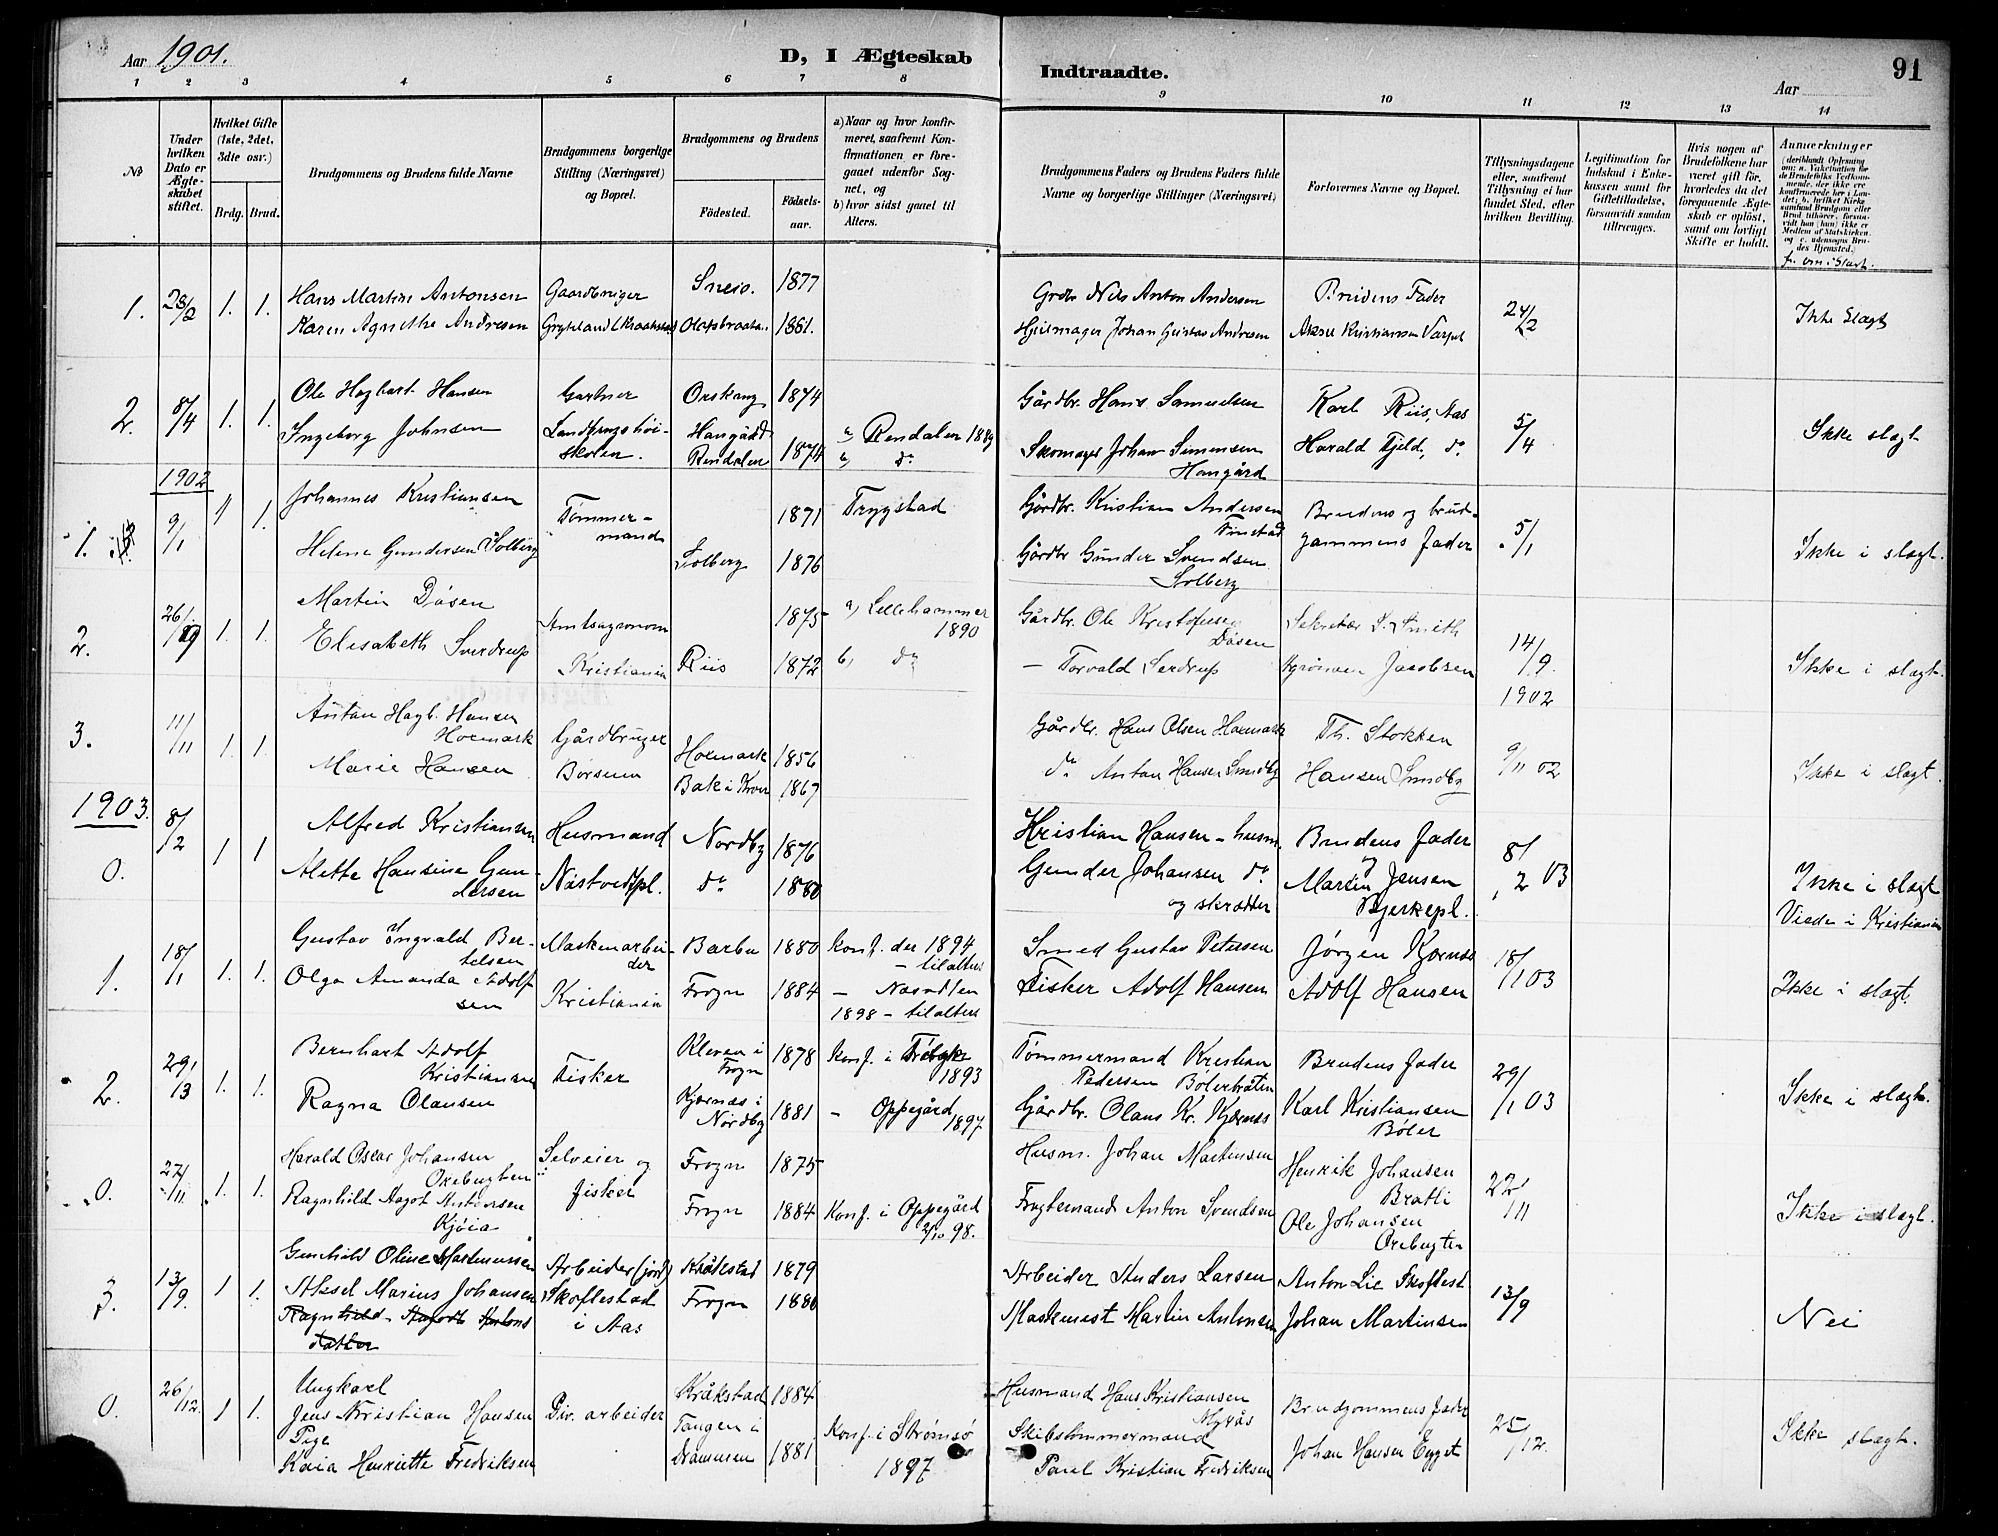 Aar 1901.
D, I Ægteskab
Indtraadte.
Aar
91
1 2 3 4 5 6 7 8 9 10 11 12 13 14
No
Under hvilken Dato er Ægteskabet stiftet.
Hvilket Gifte (1ste, 2det, 3die osv.)
Brdg. Brud.
Brudgommens og Brudens fulde Navne
Brudgommens borgerlige Stilling (Næringsvei) og Bopæl.
Brudgommens og Brudens
Fødested.
Fødselsaar.
a) Naar og hvor konfirmeret, saafremt Konfirmationen er foregaaet udenfor Sognet, og
b) hvor sidst gaaet til Alters.
Brudgommens Faders og Brudens Faders fulde Navne og borgerlige Stillinger (Næringsvei)
Forlovernes Navne og Bopæl.
Tillysningsdagene eller, saafremt Tillysning ei har fundet Sted, efter hvilken Bevilling.
Legitimation for Indskud i Enkekassen samt for Giftetilladelse, forsaavidt saadan tiltrænges.
Hvis nogen af Brudefolkene har været gift før, hvorledes da det foregaaende Ægteskab er opløst, samt om lovligt Skifte er holdt.
Anmerkninger
1. 28/2 1. 1. Hans Martin Antonsen Gaardbruger Sneis. 1877 Grdbr Nils Anton Andersen Brudens Fader 24/2 Ikke Slægt
Karen Agnethe Andresen 1861. Hjulmager Johan Gustav Andresen Aksel Kristiansen
2. 8/4 1. 1. Ole Hagbart Hansen Gartner Orskaug 1874 Gårdbr. Hans Samuelsen Karl Riis, Aas 5/4 Ikke slægt
Ingeborg Johnsen Landbrugshøiskolen. Hangård Rendalen 1874 a) Rendalen 1889
b) do
Skomager Johan Simensen Hangård Harald Fjeld, do
1902
1. 9/1 1 1. Johannes Kristiansen Tømmermand 1871 Trygstad Gårdbr. Kristian Andersen Finstad Brudens og brudgommens fader 5/1 Ikke i slægt.
Helene Gundersen Solberg Solberg 1876 Gårdbr Gunder Svendsen Solberg
2. 26/9 1. 1. Martin Døsen Amtsagronom 1875 a) Lillehammer 1890 Gårdbr. Ole Kristofersen Døsen Sekretær S. Smith 14/9 1902 Ikke i slægt.
Elisabeth Sverdrup Kristiania Riis 1872 b) do — Torvald Serdrup Agronom Jacobsen
3. 11/11 1. 1. Anton Hagb. Hansen Hormark Gårdbruger Hormark 1856 Gårdbr. Hans Olsen Hormark Th. Stokken 9/11 02 Ikke i slægt.
Marie Hansen Børsum Bak i Kroer 1867 do Anton Hansen Sundby Hansen Sundby
1903.
0. 8/2 1 1 Alfred Kristiansen Husmand Nordby 1876 Kristian Hansen - husm. Brudens fader og 8/2 03 Ikke i slægt
Alette Hansine Gundersen Næstvedtpl. do 1880 Gunder Johansen do og skrædder Martin Jensen Bjerkepl.
Viede i Kristiania
1. 18/1 1. 1. Gustav Ingvald Bertelsen Maskinarbeider Barbu 1880 Konf. der 1894 — til alters Smed Gustav Petersen Jørgen Kjærnes 18/1 03 Ikke i slægt.
Olga Amanda Adolfsen Kristiania Frogn 1884 — Næsodden 1898 — til alters Fisker Adolf Hansen Adolf Hansen
2. 29/13 1. 1. Bernhart Adolf Kristiansen Fisker Kleven i Frogn 1878 Konf. i 1893 Tømmermand Kristian Pedersen Bølerbråten Brudens fader 29/1 03 Ikke i slægt.
Ragna Olausen Kjærnes i Nordby 1881 — Oppegård 1897 Gårdbr. Olaus Kr. Kjærnes Karl Kristiansen Bøler
0. 27/11 1. 1. Harald Oscar Johansen Orebugten Selveier og fisker Frogn 1875 Husm. Johan Martinsen Henrik Johansen Bratli 22/11 Ikke i slægt.
Ragnhild Aagot Antonsen Kjøia Frogn 1884 Konf. i Oppegård 2/10 98. Frugtemand Anton Svendsen Ole Johansen Orebugten
3. 13/9 1 1. Gunhild Oline Martinussen Arbeider (jord) Kråkstad 1879 Arbeider Anders Larsen Anton Lie Skoflest 13/9 Nei
Aksel Marius Johansen Skoflestad i Aas Frogn 1880 Maskinist Martin Antonsen Johan Martinsen
Ragnhild Aagodt Antonsdatter
0. 26/12. 1 1. Ungkarl Jens Kristian Hansen Div. arbeider Kråkstad 1884 Husmand Hans Kristiansen Myrås Brudgommens fader 25/12. Ikke slægt.
Pige Kaia Henriette Fredriksen Tangen i Drammen 1881 Konf. i Strømsø 1897 Skibstømmermand Paul Kristian Fredriksen Johan Hansen